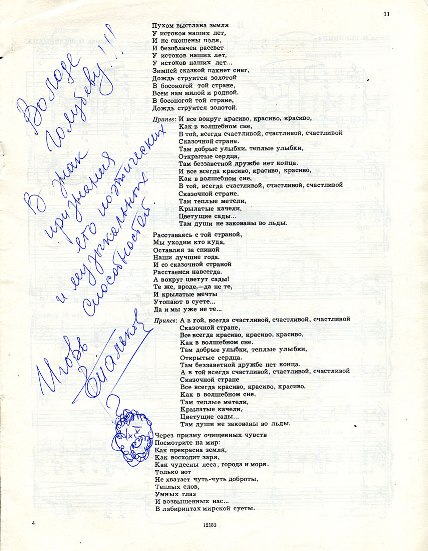 11
Пухом выстлана земля
У истоков наших лет,
И не скошены поля,
И безоблачен рассвет
У истоков наших лет,
У истоков наших лет...
Зимней сказкой пахнет снег,
Дождь струится золотой
В босоногой той стране,
Всем нам милой и родной.
В босоногой той стране,
Дождь струится золотой.
Припев: И все вокруг красиво, красиво, красиво,
Как в волшебном сне,
В той, всегда счастливой, счастливой, счастливой
Сказочной стране.
Там добрые улыбки, теплые улыбки,
Открытые сердца,
Там беззаветной дружбе нет конца.
И все всегда красиво, красиво, красиво,
Как в волшебном сне.
В той, всегда счастливой, счастливой, счастливой
Сказочной стране.
Там теплые метели,
Крылатые качели,
Цветущие сады...
Там души не закованы во льды.
Расставаясь с той страной,
Мы уходим кто куда,
Оставляя за спиной
Наши лучшие года.
И со сказочной страной
Расстаемся навсегда.
А вокруг цветут сады!
Те же, вроде,—да не те,
И крылатые мечты
Утопают в суете...
Да и мы уже не те...
Припев: А в той, всегда счастливой, счастливой, счастливой
Сказочной стране,
Все всегда красиво, красиво, красиво,
Как в волшебном сне.
Там добрые улыбки, теплые улыбки,
Открытые сердца.
Там беззаветной дружбе нет конца.
А в той всегда счастливой, счастливой, счастливой
Сказочной стране
Все всегда красиво, красиво, красиво.
Как в волшебном сне,
Там теплые метели,
Крылатые качели,
Цветущие сады...
Там души не закованы во льды.
Через призму очищенных чувств
Посмотрите на мир:
Как прекрасна земля,
Как восходит заря,
Как чудесны леса, города и моря.
Только вот
Не хватает чуть-чуть доброты,
Теплых слов,
Умных глаз
И возвышенных нас...
В лабиринтах мирской суеты.
4
Володе
Голубеву!!!
В знак
признания
его поэтических
и музыкальных
способностей.
Игорь